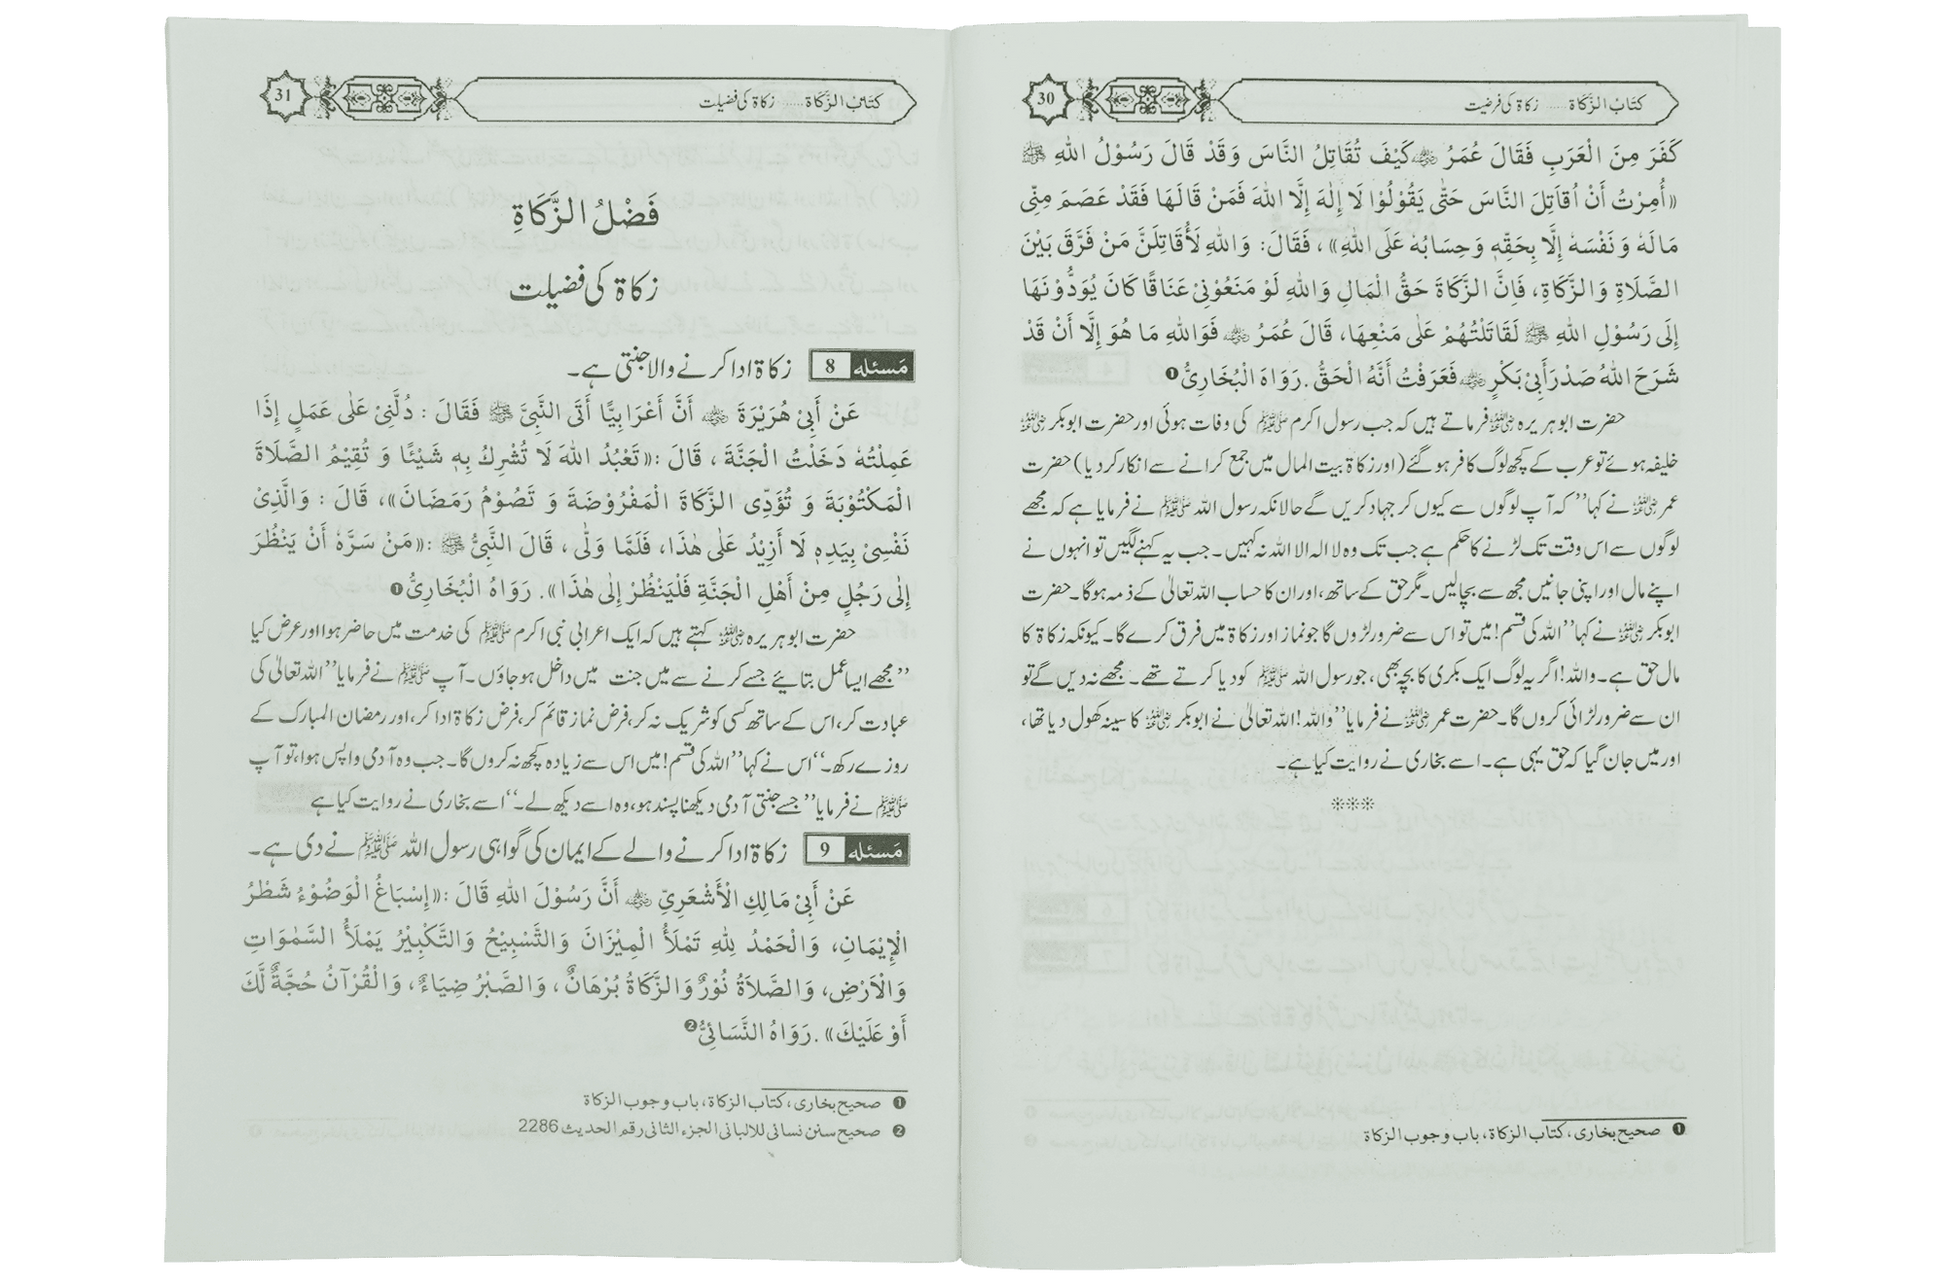 30
كتاب الزكاة ..... زکاة کی فرضیت
كَفَرَ مِنَ الْعَرَبِ فَقَالَ عُمَرُ ﷺ كَيْفَ تُقَاتِلُ النَّاسَ وَقَدْ قَالَ رَسُوْلُ اللهِ ﷺ
«أُمِرْتُ أَنْ أُقَاتِلَ النَّاسَ حَتّٰى يَقُوْلُوْا لَا إِلٰهَ إِلَّا اللهَ فَمَنْ قَالَهَا فَقَدْ عَصَمَ مِنِّى
مَالَهٗ وَ نَفْسَهٗ إِلَّا بِحَقِّهٖ وَ حِسَابُهٗ عَلَى اللهِ» ، فَقَالَ: وَاللهِ لَأُقَاتِلَنَّ مَنْ فَرَّقَ بَيْنَ
الصَّلَاةِ وَ الزَّكَاةِ، فَاِنَّ الزَّكَاةَ حَقُّ الْمَالِ وَاللهِ لَوْ مَنَعُوْنِىْ عَنَاقًا كَانَ يُوَدُّوْنَهَا
إِلَى رَسُوْلِ اللهِ ﷺ لَقَاتَلْتُهُمْ عَلٰى مَنْعِهَا، قَالَ عُمَرُ ؓ فَوَاللهِ مَا هُوَ إِلَّا أَنْ قَدْ
شَرَحَ اللهُ صَدْرَ أَبِىْ بَكْرٍ ؓ فَعَرَفْتُ أَنَّهُ الْحَقُّ . رَوَاهَ الْبُخَارِىُّ ❶
حضرت ابو ہریرہ ؓ فرماتے ہیں کہ جب رسول اکرم ﷺ کی وفات ہوئی اور حضرت ابوبکر ؓ
خلیفہ ہوئے تو عرب کے کچھ لوگ کافر ہو گئے (اور زکاة بیت المال میں جمع کرانے سے انکار کر دیا) حضرت
عمر ؓ نے کہا ’’کہ آپ لوگوں سے کیوں کر جہاد کریں گے حالانکہ رسول اللہ ﷺ نے فرمایا ہے کہ مجھے
لوگوں سے اس وقت تک لڑنے کا حکم ہے جب تک وہ لا الہ الا اللہ نہ کہیں۔ جب یہ کہنے لگیں تو انہوں نے
اپنے مال اور اپنی جانیں مجھ سے بچالیں۔ مگر حق کے ساتھ، اور ان کا حساب اللہ تعالیٰ کے ذمہ ہو گا۔ حضرت
ابوبکر ؓ نے کہا ’’اللہ کی قسم! میں تو اس سے ضرور لڑوں گا جو نماز اور زکاة میں فرق کرے گا۔ کیونکہ زکاة کا
مال حق ہے۔ واللہ! اگر یہ لوگ ایک بکری کا بچہ بھی، جو رسول اللہ ﷺ کو دیا کرتے تھے۔ مجھے نہ دیں گے تو
ان سے ضرور لڑائی کروں گا۔ حضرت عمر ؓ نے فرمایا ’’واللہ! اللہ تعالیٰ نے ابوبکر ؓ کا سینہ کھول دیا تھا،
اور میں جان گیا کہ حق یہی ہے۔ اسے بخاری نے روایت کیا ہے۔
❶ صحیح بخاری، کتاب الزکاة، باب وجوب الزکاة
31
كتاب الزكاة ..... زکاة کی فضیلت
فَضْلُ الزَّكَاةِ
زکاة کی فضیلت
مَسئله 8 زکاة ادا کرنے والا جنتی ہے۔
عَنْ أَبِىْ هُرَيْرَةَ ؓ أَنَّ أَعْرَابِيًّا أَتَى النَّبِىَّ ﷺ فَقَالَ : دُلَّنِىْ عَلٰى عَمَلٍ إِذَا
عَمِلْتُهٗ دَخَلْتُ الْجَنَّةَ ، قَالَ :«تَعْبُدُ اللهَ لَا تُشْرِكُ بِهٖ شَيْئًا وَ تُقِيْمُ الصَّلَاةَ
الْمَكْتُوْبَةَ وَ تُؤَدِّى الزَّكَاةَ الْمَفْرُوْضَةَ وَ تَصُوْمُ رَمَضَانَ»، قَالَ : وَالَّذِىْ
نَفْسِىْ بِيَدِهٖ لَا أَزِيْدُ عَلٰى هٰذَا، فَلَمَّا وَلّٰى ، قَالَ النَّبِىُّ ﷺ :«مَنْ سَرَّهٗ أَنْ يَنْظُرَ
إِلٰى رَجُلٍ مِنْ أَهْلِ الْجَنَّةِ فَلْيَنْظُرْ إِلٰى هٰذَا». رَوَاهُ الْبُخَارِىُّ ❶
حضرت ابو ہریرہ ؓ کہتے ہیں کہ ایک اعرابی نبی اکرم ﷺ کی خدمت میں حاضر ہوا اور عرض کیا
’’مجھے ایسا عمل بتائیے جسے کرنے سے میں جنت میں داخل ہو جاؤں۔ آپ ﷺ نے فرمایا ’’اللہ تعالیٰ کی
عبادت کر، اس کے ساتھ کسی کو شریک نہ کر، فرض نماز قائم کر، فرض زکاة ادا کر، اور رمضان المبارک کے
روزے رکھ۔‘‘ اس نے کہا ’’اللہ کی قسم! میں اس سے زیادہ کچھ نہ کروں گا۔ جب وہ آدمی واپس ہوا، تو آپ
ﷺ نے فرمایا ’’جسے جنتی آدمی دیکھنا پسند ہو، وہ اسے دیکھ لے۔‘‘ اسے بخاری نے روایت کیا ہے
مَسئله 9 زکاة ادا کرنے والے کے ایمان کی گواہی رسول اللہ ﷺ نے دی ہے۔
عَنْ أَبِىْ مَالِكِ الْأَشْعَرِىِّ ؓ أَنَّ رَسُوْلَ اللهِ قَالَ :«إِسْبَاغُ الْوَضُوْءُ شَطْرُ
الْإِيْمَانِ، وَالْحَمْدُ لِلّٰهِ تَمْلَأُ الْمِيْزَانَ وَالتَّسْبِيْحُ وَالتَّكْبِيْرُ يَمْلَأُ السَّمٰوَاتِ
وَالْاَرْضِ، وَالصَّلاَةُ نُوْرٌ وَالزَّكَاةُ بُرْهَانٌ، وَالصَّبْرُ ضِيَاءٌ، وَالْقُرْآنُ حُجَّةٌ لَّكَ
أَوْ عَلَيْكَ» .رَوَاهُ النَّسَائِىُّ ❷
❶ صحیح بخاری، کتاب الزکاة، باب وجوب الزکاة
❷ صحیح سنن نسائی للالبانی الجزء الثانی رقم الحدیث 2286